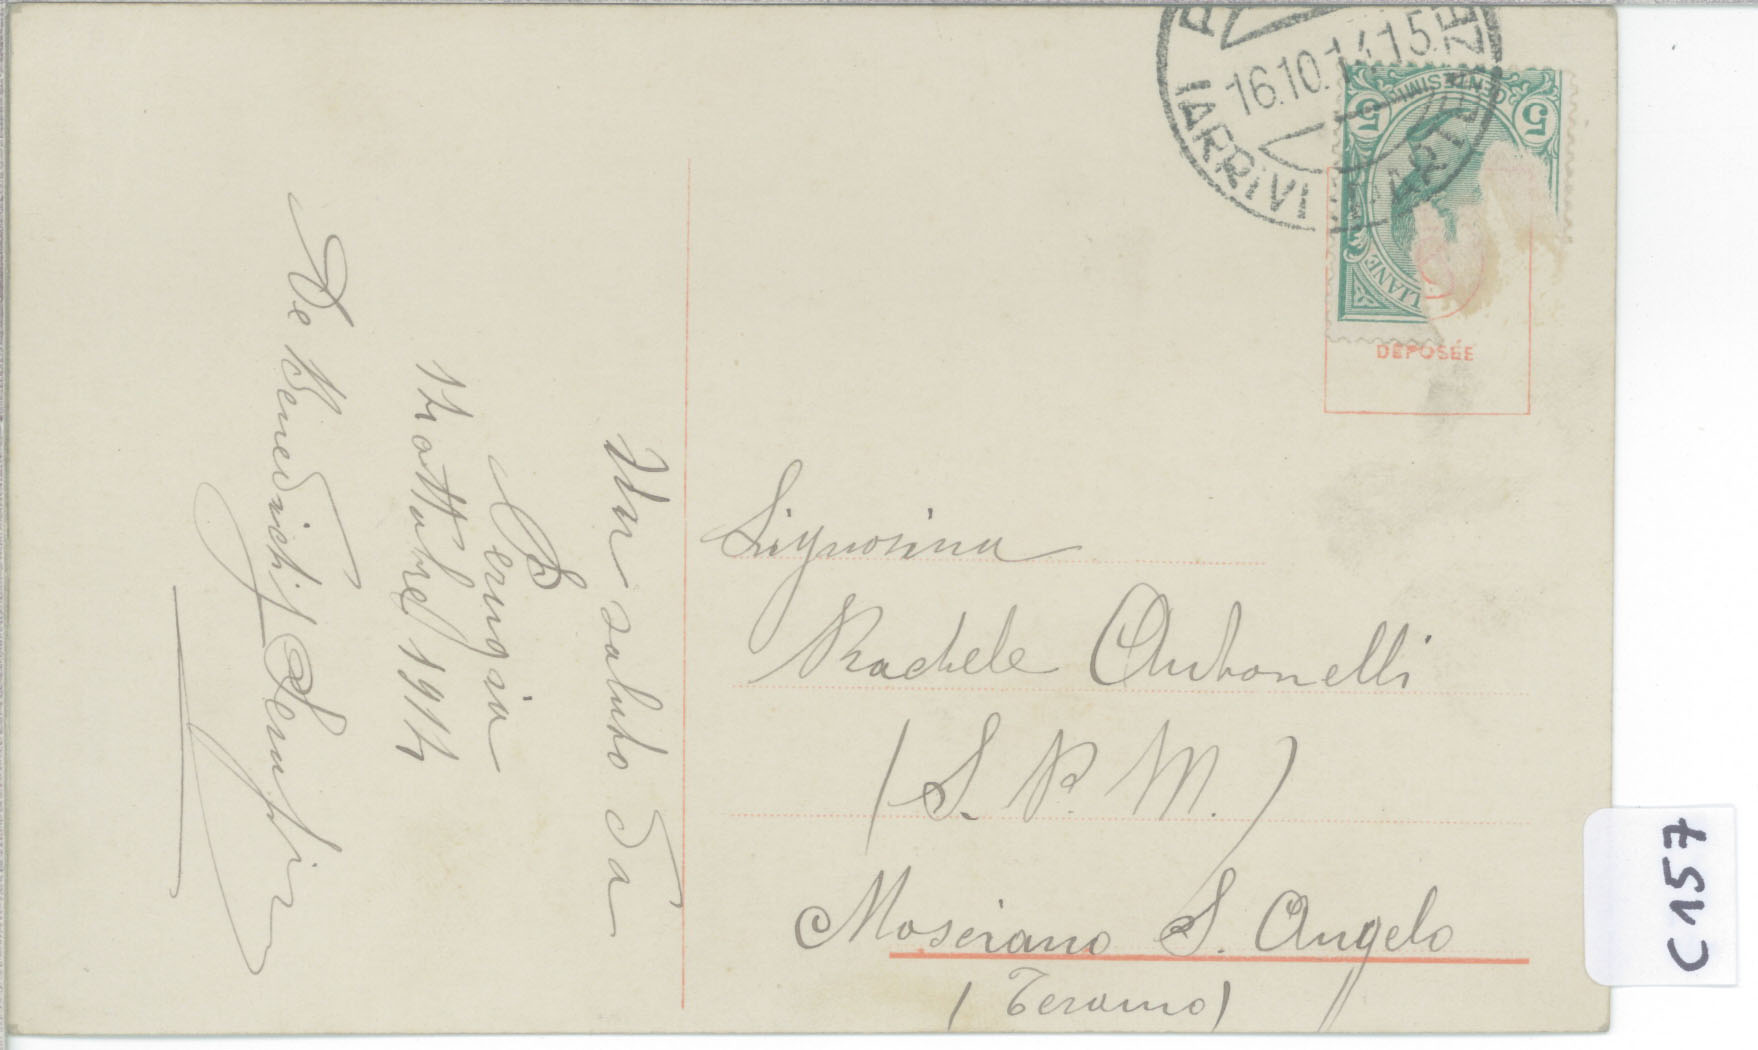 Un saluto da
Perugia
ottobre 1914
De Benedictis Serafino
16.10.14.15
ARRIVI
PARTENZE
5
5
CENTESIMI
LIANE
DÉPOSÉE
Signorina
Rachele Antonelli
(S. P. M.)
Mosciano S. Angelo
(Teramo)
C157